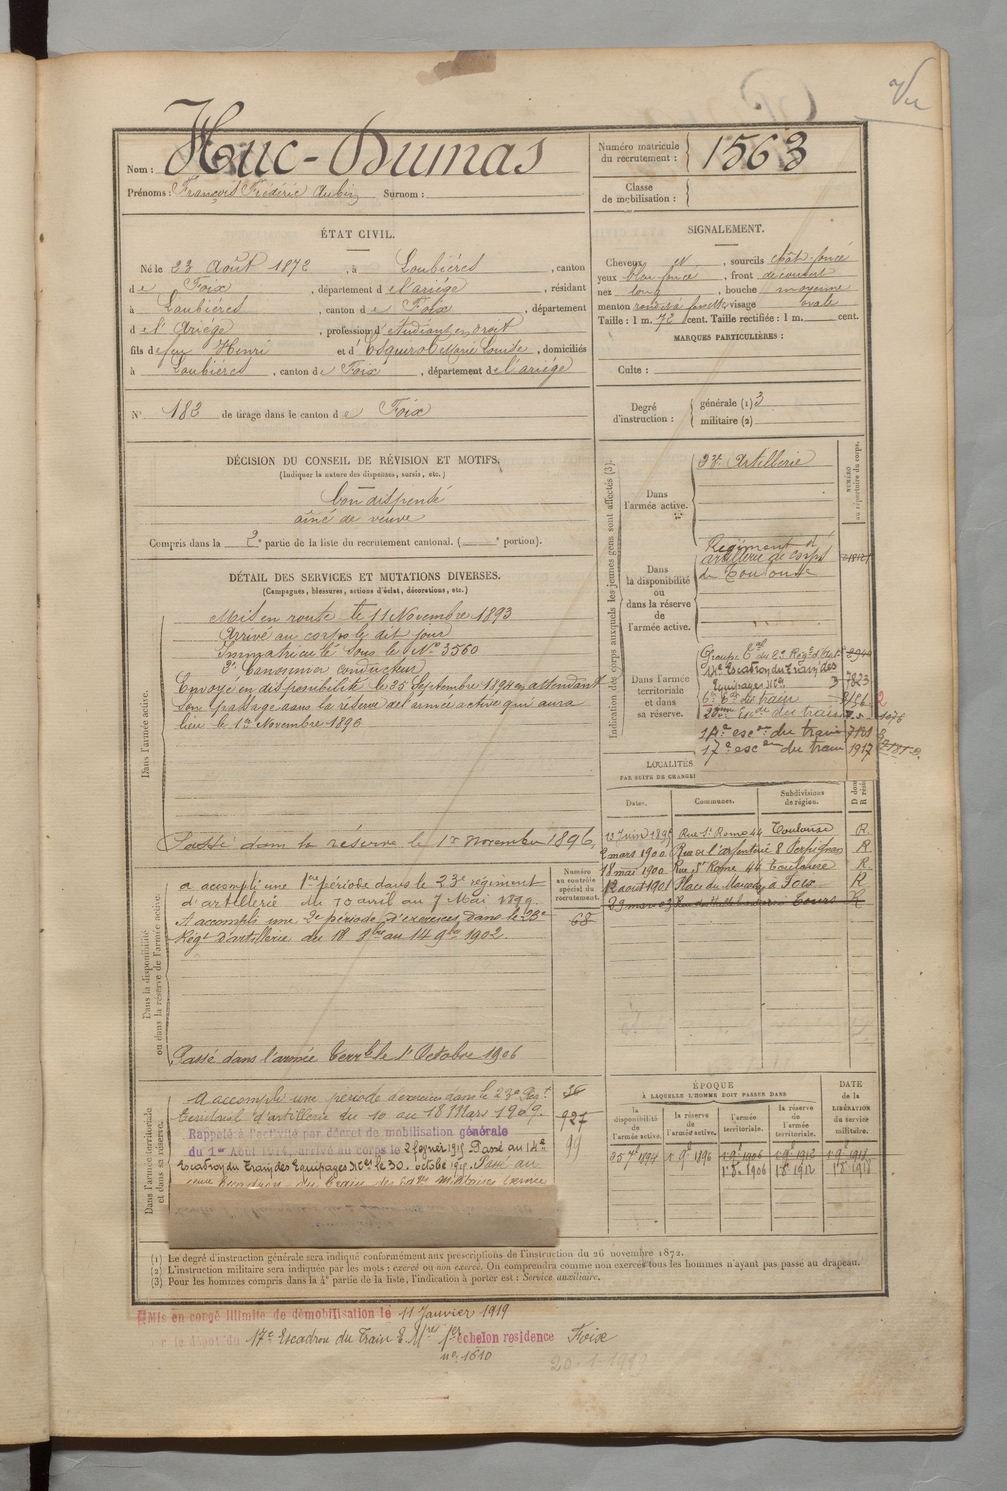 Vu
Nom : Huc-Dumas
Prénoms : François Frédéric Aubin Surnom :
Numéro matricule du recrutement : 1563
Classe de mobilisation :
ÉTAT CIVIL.
Né le 23 Août 1872, à Loubières, canton
de Foix, département de l'ariége, résidant
à Loubières, canton de Foix, département
de l'Ariége, profession d'étudiant en droit
fils de feu Henri et d'Esquirol Marie Louise, domiciliés
à Loubières, canton de Foix, département de l'ariége
N° 183 de tirage dans le canton de Foix
SIGNALEMENT.
Cheveux et, sourcils chât-foncé
yeux bleu foncé, front découvert
nez long, bouche moyenne
menton rond à fossette visage ovale
Taille : 1 m. 72 cent. Taille rectifiée : 1 m. cent.
MARQUES PARTICULIÈRES :
Culte :
Degré d'instruction : générale (1) 3
militaire (2)
DÉCISION DU CONSEIL DE RÉVISION ET MOTIFS.
(Indiquer la nature des dispenses, sursis, etc.)
bon dispensé
aîné de veuve
Compris dans la 2e partie de la liste du recrutement cantonal. ( e portion).
DÉTAIL DES SERVICES ET MUTATIONS DIVERSES.
(Campagnes, blessures, actions d'éclat, décorations, etc.)
Dans l'armée active.
Mis en route le 11 Novembre 1893
Arrivé au corps le dit jour
Immatriculé sous le No 3560
2e Canonnier conducteur
Envoyé en disponibilité le 25 Septembre 1894 en attendant
son passage dans la réserve de l'armée active qui aura
lieu le 1er Novembre 1896
Passé dans la réserve le 1er Novembre 1896
Dans la disponibilité ou dans la réserve de l'armée active.
a accompli une 1re période dans le 23e régiment
d'artillerie du 10 avril au 7 Mai 1899.
A accompli une 2e période d'exercices dans le 23e
Régt d'artillerie du 18 8bre au 14 9bre 1902.
Passé dans l'armée Terrle le 1er Octobre 1906
Numéro au contrôle spécial du recrutement.
68
Dans l'armée territoriale et dans sa réserve.
A accompli une période d'exercices dans le 23e Régt
Territorial d'artillerie du 10 au 18 Mars 1909.
Rappelé à l'activité par décret de mobilisation générale
du 1er Août 1914, arrivé au corps le 2 février 1915 Passé au 14e
Escadron du Train des Equipages Mres le 30 octobre 1915. Passé au
927
99
Indication des corps auxquels les jeunes gens sont affectés (3).
NUMÉRO au répertoire du corps.
Dans l'armée active.
23e Artillerie
Dans la disponibilité ou dans la réserve de l'armée active.
Régiment d'
artillerie de corps
de Toulouse
Dans l'armée territoriale et dans sa réserve.
14e Escadron du Train des
Equipages Mres 7823
du train
18e escon du train 7181
17e escon du train 1917
LOCALITÉS
PAR SUITE DE CHANGE
Dates. Communes. Subdivisions de région.
13 Juin 1895 Rue St Rome 44 Toulouse R.
2 mars 1900 Rue de l'argenterie 8 Perpignan R
18 mai 1900 Rue St Rome 44 Toulouse R.
13 août 1901 Place du Marché à Foix R
23 mars 03 Tours R
ÉPOQUE
À LAQUELLE L'HOMME DOIT PASSER DANS
DATE de la LIBÉRATION du service militaire.
la disponibilité de l'armée active. la réserve de l'armée active. l'armée territoriale. la réserve de l'armée territoriale.
25 7e 1894 1er 9e 1896 1er 9e 1906 1er 9e 1912 1er 9e 1918
1er 8e 1906 1er 8e 1912 1er 8e 1918
(1) Le degré d'instruction générale sera indiqué conformément aux prescriptions de l'instruction du 26 novembre 1872.
(2) L'instruction militaire sera indiquée par les mots : exercé ou non exercé. On comprendra comme non exercés tous les hommes n'ayant pas passé au drapeau.
(3) Pour les hommes compris dans la 4e partie de la liste, l'indication à porter est : Service auxiliaire.
Mis en congé illimité de démobilisation le 11 Janvier 1919
r le dépôt du 17e Escadron du Train E. Mres 1er échelon residence Foix
no 1610